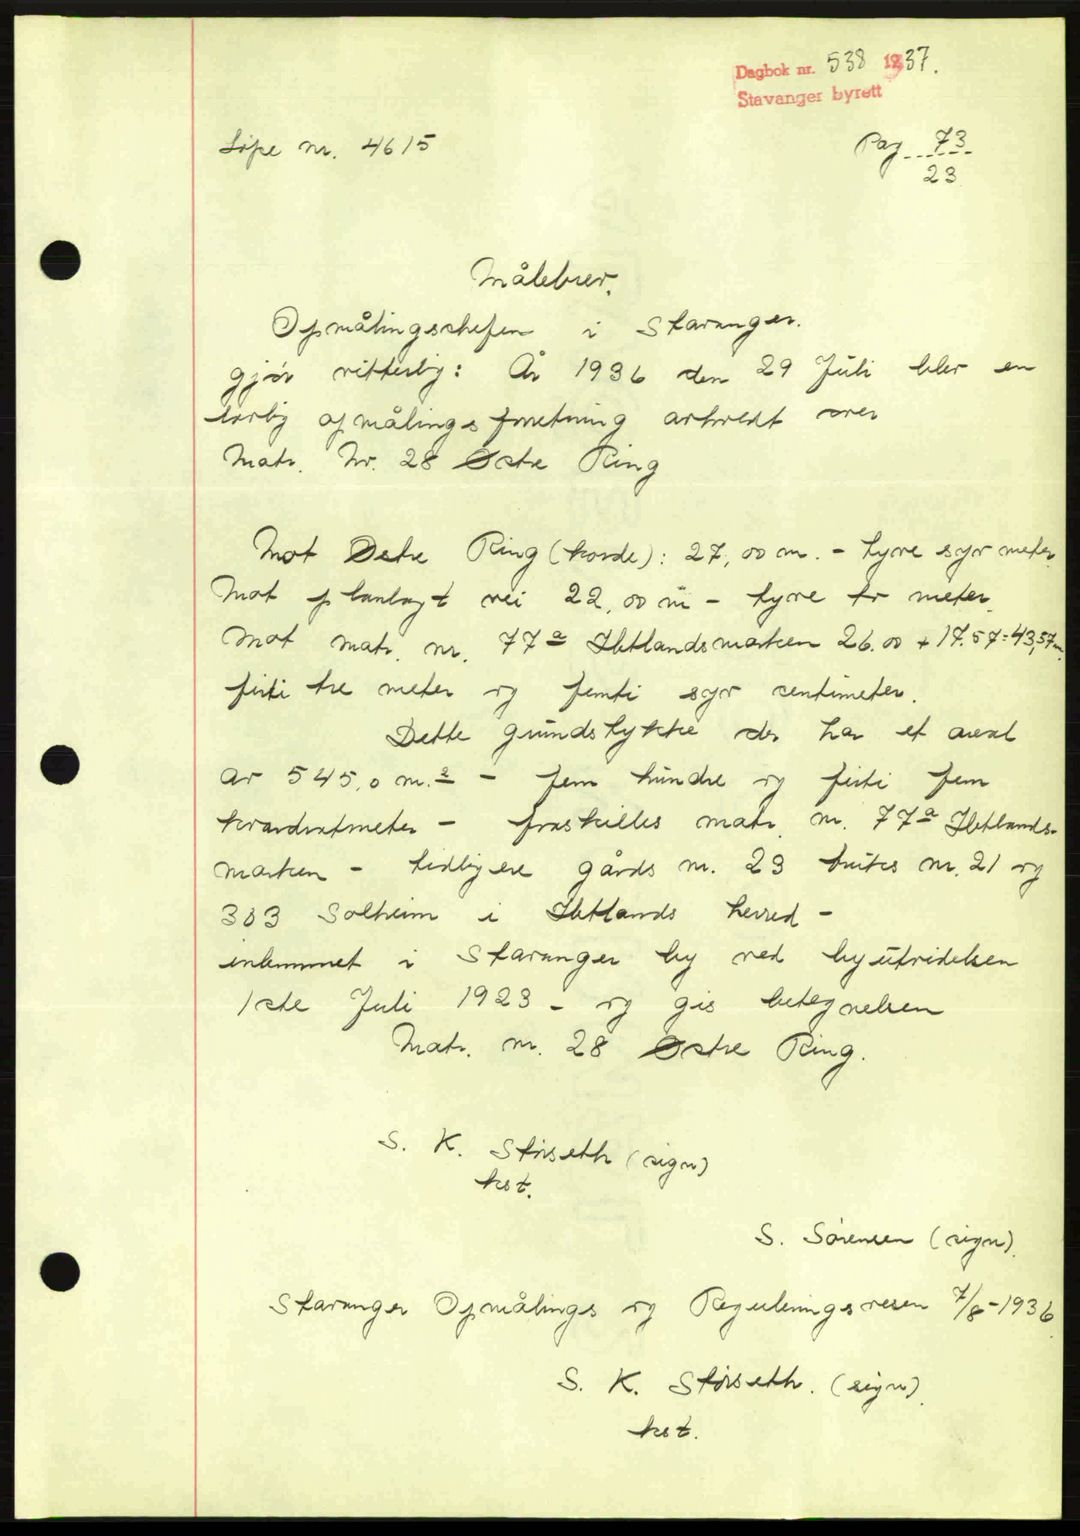 Dagbok nr. 538 1937.
Stavanger byrett
Löpe nr. 4615
Pag 73
23
Målebrev.
Opmålingschefen i Stavanger.
gjør vitterlig: År 1936 den 29 Juli blev en
lovlig opmålingsforretning avholdt over
Matr. Nr. 28 Østre Ring
Mot Østre Ring (korde): 27,00 m. - tyve syv meter.
Mot planlagt vei 22,00 m - tyve to meter.
Mot matr. nr. 77a Hetlandsmarken 26.00 + 17.57 = 43,57 m.
firti tre meter og femti syv centimeter.
Dette grundstykke der har et areal
av 545,0 m.2 - fem hundre og firti fem
kvardratmeter - fraskilles matr. nr. 77a Hetlands-
marken - tidligere gårds nr. 23 bruks nr. 21 og
303 Solheim i Hetlands herred -
inlemmet i Stavanger by ved byutvidelsen
1ste Juli 1923 - og gis betegnelsen
Matr. nr. 28 Østre Ring.
S. K. Störseth (sign)
kst.
S. Sörensen (sign).
Stavanger Opmålings og Reguleringsvesen 7/8-1936
S. K. Störseth. (sign).
kst.